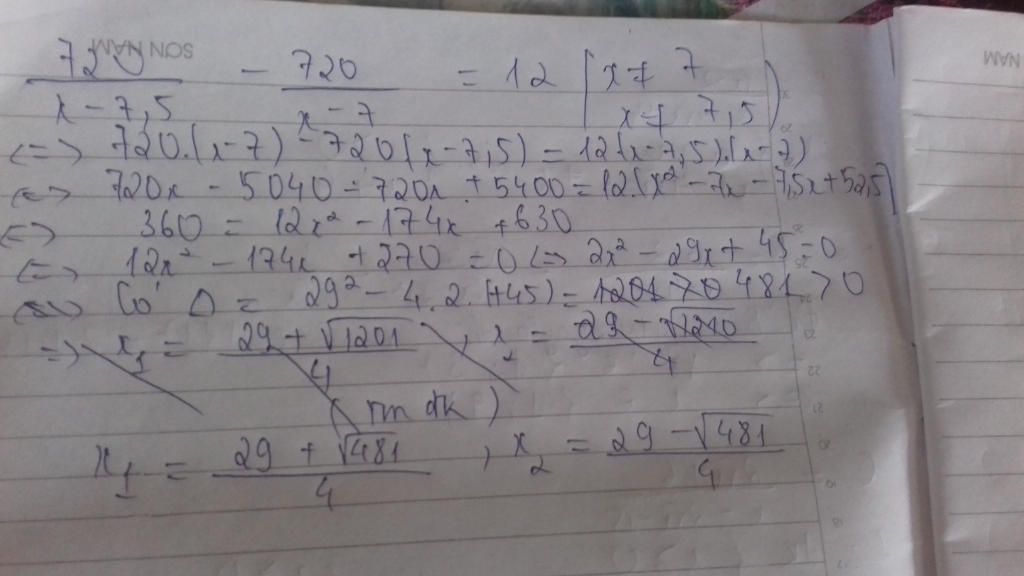 SON NAM
NAM
720/(x - 7,5) - 720/(x - 7) = 12 (x ≠ 7 x ≠ 7,5)
<=> 720.(x-7) - 720(x-7,5) = 12(x-7,5).(x-7)
<=> 720x - 5040 - 720x + 5400 = 12.(x² - 7x - 7,5x + 52,5)
<=> 360 = 12x² - 174x + 630
<=> 12x² - 174x + 270 = 0 <=> 2x² - 29x + 45 = 0
Có Δ = 29² - 4.2.(+45) = 1201 > 0 481 > 0
=> x₁ = (29 + √1201)/4 , x₂ = (29 - √1210)/4
(tm đk)
x₁ = (29 + √481)/4 , x₂ = (29 - √481)/4